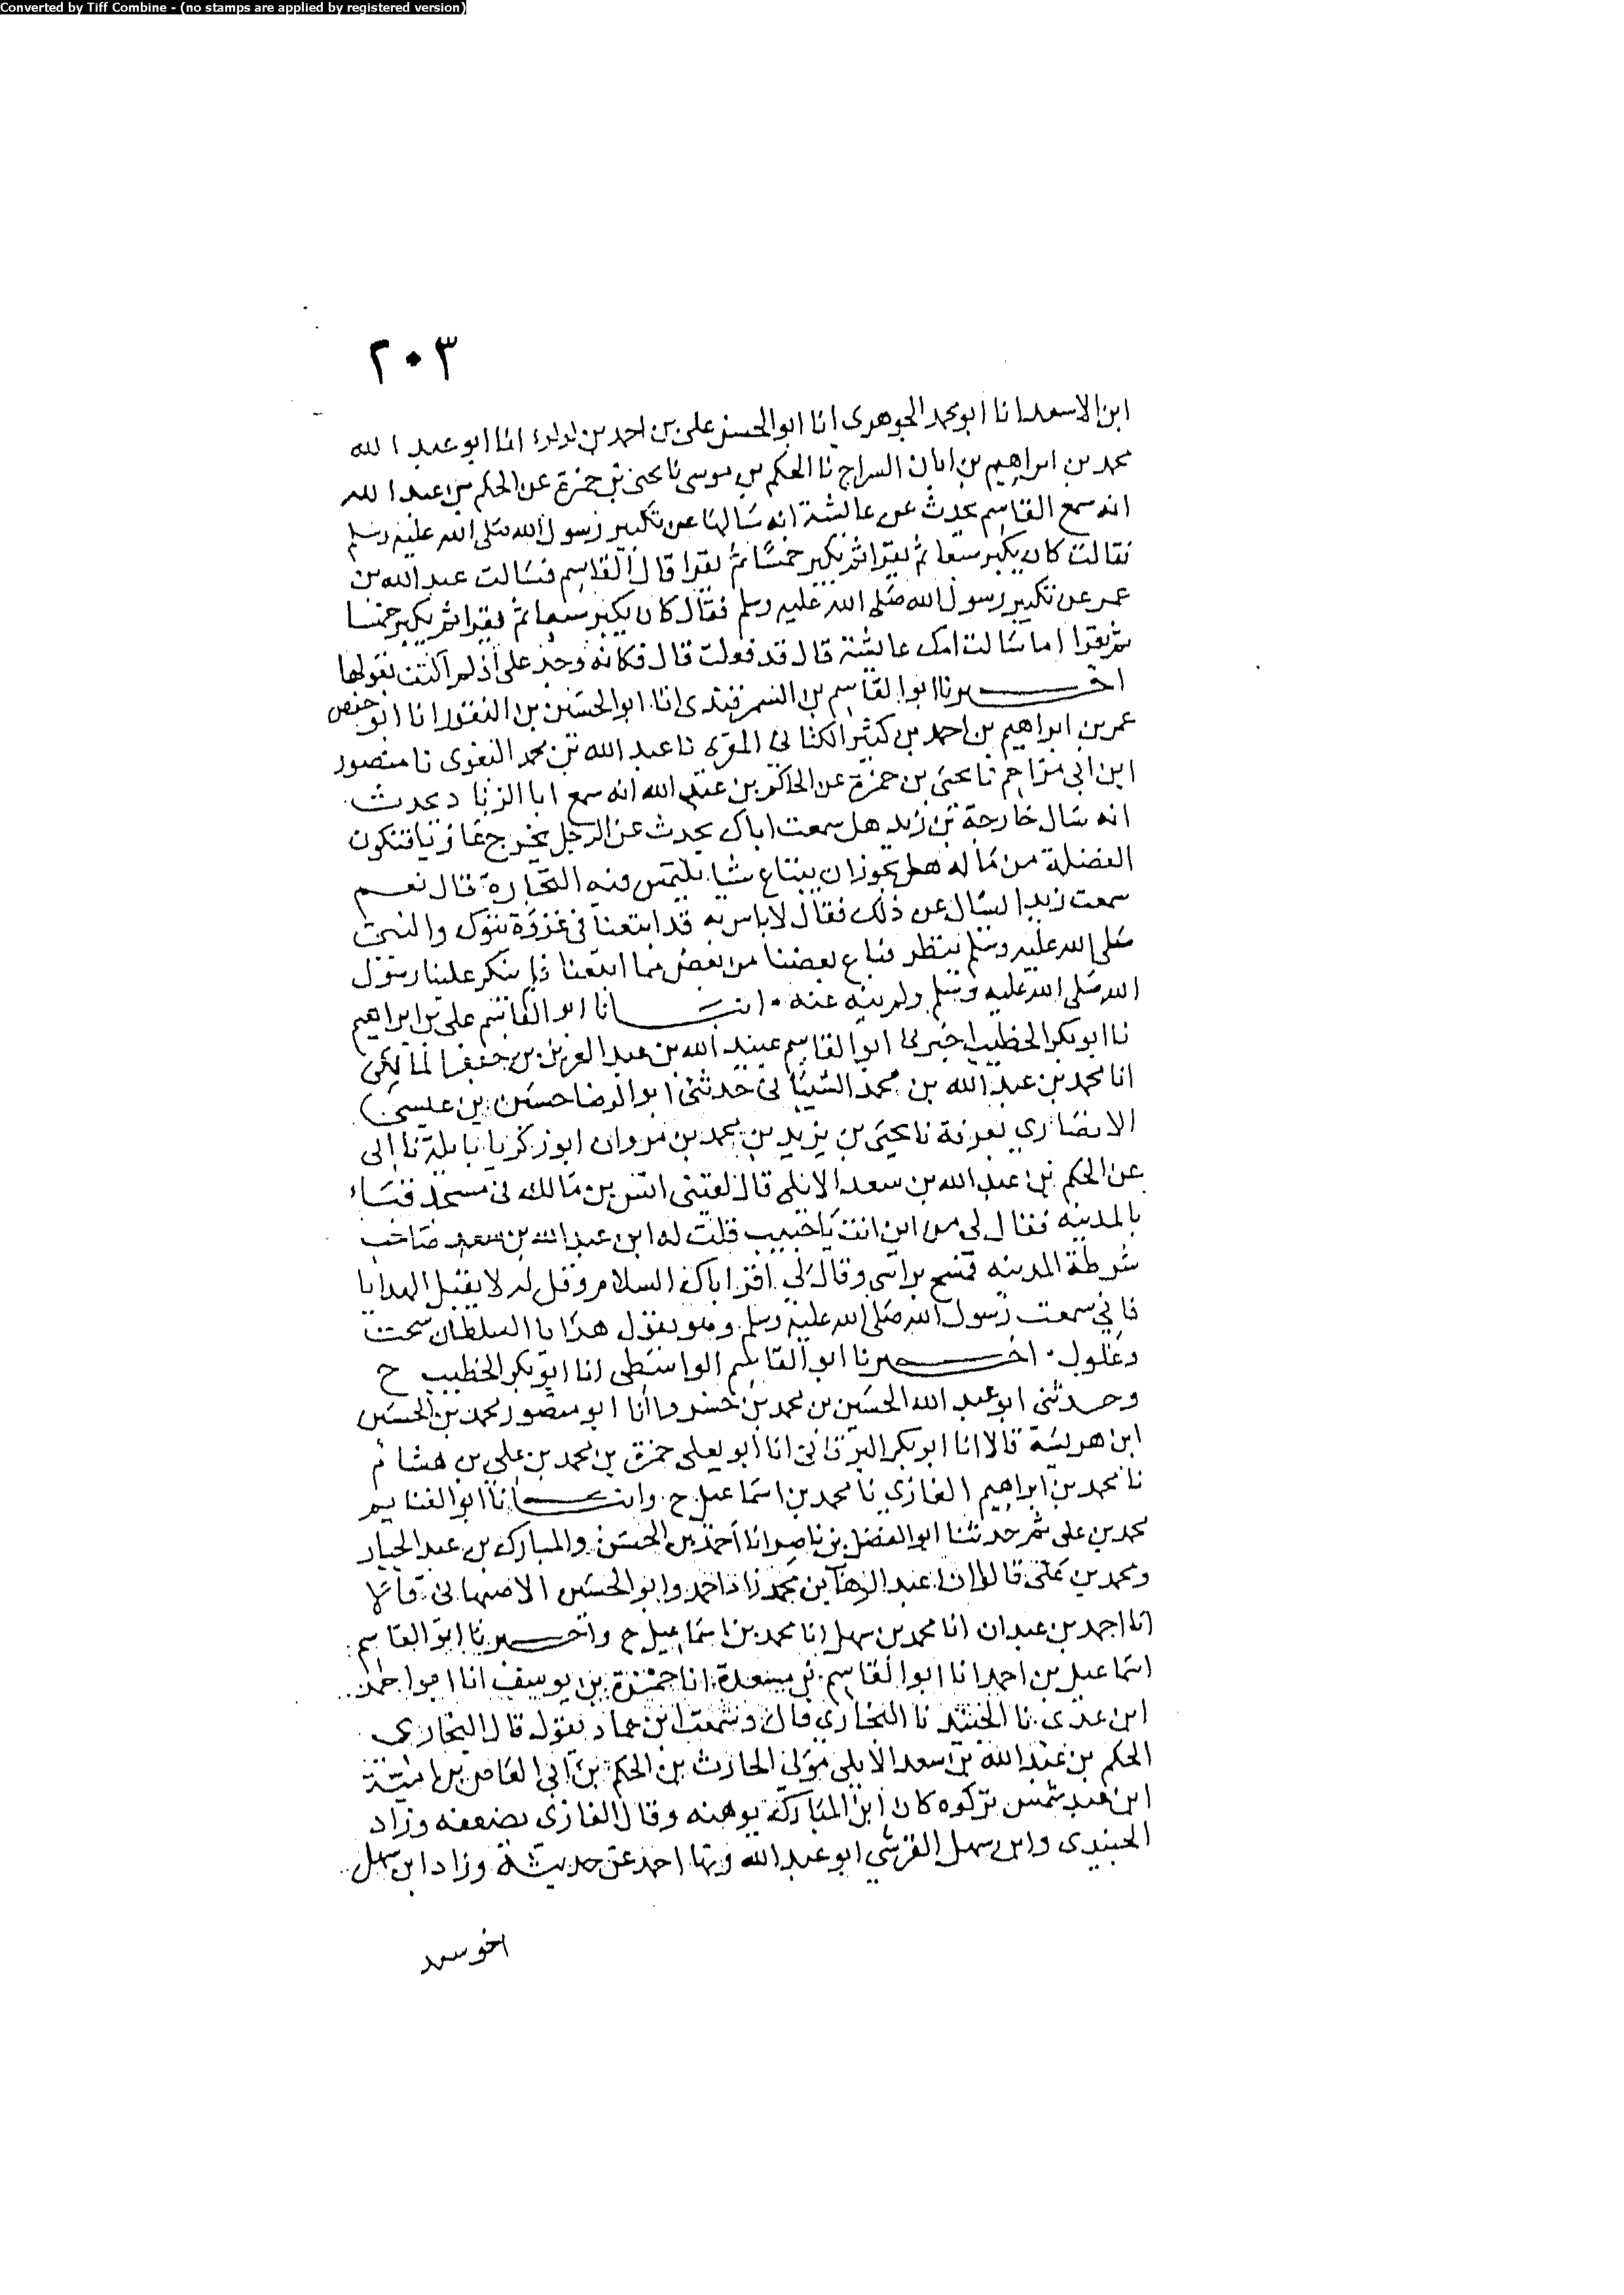 Converted by Tiff Combine - (no stamps are applied by registered version)
٢٠٣
ابن الاسعد انا ابو محمد الجوهري انا ابو الحسن علي بن احمد بن لولو انا ابو عبد الله
محمد بن ابراهيم بن ابان السراج نا الحكم بن موسى نا يحيى بن حمزة عن الحكم بن عبد الله
انه سمع القاسم يحدث عن عائشة انه سالها عن تكبير رسول الله صلى الله عليه وسلم
فقالت كان يكبر سبعا ثم يقرا ثم يكبر خمسا ثم يقرا قال القاسم فسالت عبد الله بن
عمر عن تكبير رسول الله صلى الله عليه وسلم فقال كان يكبر سبعا ثم يقرا ثم يكبر خمسا
ثم يقرا اما سالت امك عائشة قال قد فعلت قال فكانه وجد علي اذ لم اكتف بقولها
اخبرنا ابو القاسم بن السمرقندي انا ابو الحسين بن النقور انا ابو حفص
عمر بن ابراهيم بن احمد بن كثير الكتاني المقرى نا عبد الله بن محمد البغوي نا منصور
ابن ابي مزاحم نا يحيى بن حمزة عن الحكم بن عبد الله انه سمع ابا الزناد يحدث
انه سال خارجة بن زيد هل سمعت اباك يحدث عن الرجل يخرج غازيا فتكون
الفضلة من ماله هل يجوز ان يبتاع شيا يلتمس فيه التجارة قال نعم
سمعت زيدا ليسال عن ذلك فقال لا باس به قد ابتعنا في غزوة تبوك والنبي
صلى الله عليه وسلم ينظر فباع بعضنا من بعض مما ابتعنا فلم ينكر علينا رسول
الله صلى الله عليه وسلم ولم ينه عنه ۰ انبانا ابو القاسم علي بن ابراهيم
نا ابو بكر الخطيب اخبرني ابو القاسم عبيد الله بن عبد العزيز بن جعفر المالكي
انا محمد بن عبد الله بن محمد الشيباني حدثني ابو الرضا حسين بن عيسى
الانصاري بعرفة نا يحيى بن يزيد بن محمد بن مروان ابو زكريا بايلة نا ابي
عن الحكم بن عبد الله بن سعد الايلي قال لقيني انس بن مالك في مسجد قبا
بالمدينه فقال لي من اين انت يا حبيب قلت له ابن عبد الله بن سعد صاحب
شرطة المدينه فمسح براسي وقال لي اقرا اباك السلام وقل له لا يقبل الهدايا
فاني سمعت رسول الله صلى الله عليه وسلم وهو يقول هدايا السلطان سحت
وغلول ۰ اخبرنا ابو القاسم الواسطي انا ابو بكر الخطيب ح
وحدثني ابو عبد الله الحسين بن محمد بن خسرو انا ابو منصور محمد بن الحسين
ابن هريسة قالا انا ابو بكر البرقاني انا ابو يعلى حمزة بن محمد بن علي بن هشام
نا محمد بن ابراهيم الغازي نا محمد بن اسماعيل ح وانبانا ابو الغنايم
محمد بن علي ثم حدثنا ابو الفضل بن ناصر انا احمد بن الحسن والمبارك بن عبد الجبار
ومحمد بن علي قالوا انا عبد الوهاب بن محمد زاد احمد وابو الحسين الاصبهاني قالا
انا احمد بن عبدان انا محمد بن سهل انا محمد بن اسماعيل ح واخبرنا ابو القاسم
اسماعيل بن احمد انا ابو القاسم بن مسعدة انا حمزة بن يوسف انا ابو احمد
ابن عدي نا الجنيدي نا البخاري قال وسمعت ابن حماد يقول قال البخاري
الحكم بن عبد الله بن سعد الايلي مولى الحارث بن الحكم بن ابي العاص بن امية
ابن عبد شمس تركوه كان ابن المبارك يوهنه وقال الغازي يضعفه وزاد
الجنيدي وابن سهل القرشي ابو عبد الله ونها احمد عن حديثه وزاد ابن سهل
اخو سعد